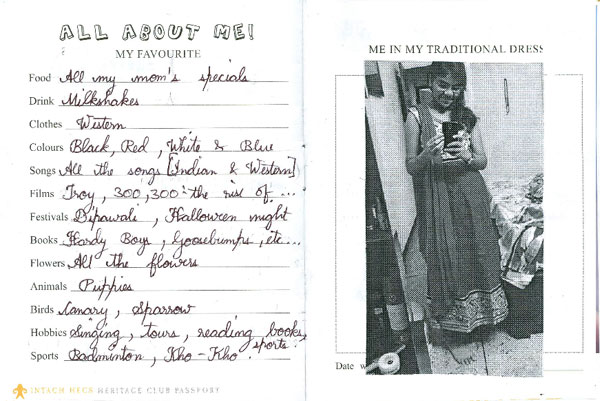 ALL ABOUT ME!
MY FAVOURITE
Food All my mom's specials
Drink Milkshakes
Clothes Western
Colours Black, Red, White & Blue
Songs All the songs [Indian & Western]
Films Troy, 300, 300: the rise of ...
Festivals Dipawali, Halloween night
Books Hardy Boys, Goosebumps, etc...
Flowers All the flowers
Animals Puppies
Birds Canary, Sparrow
Hobbies Singing, tours, reading books, sports.
Sports Badminton, Kho-Kho.
INTACH HECS HERITAGE CLUB PASSPORT
ME IN MY TRADITIONAL DRESS
Date w